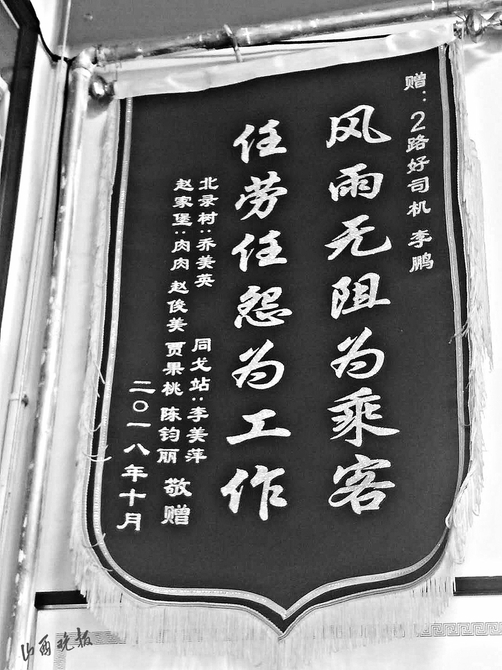 赠：2路好司机 李鹏
风雨无阻为乘客
任劳任怨为工作
北录树：乔美英 同戈站：李美萍
赵家堡：肉肉 赵俊美 贾果桃 陈钧丽 敬赠
二〇一八年十月
山西晚报